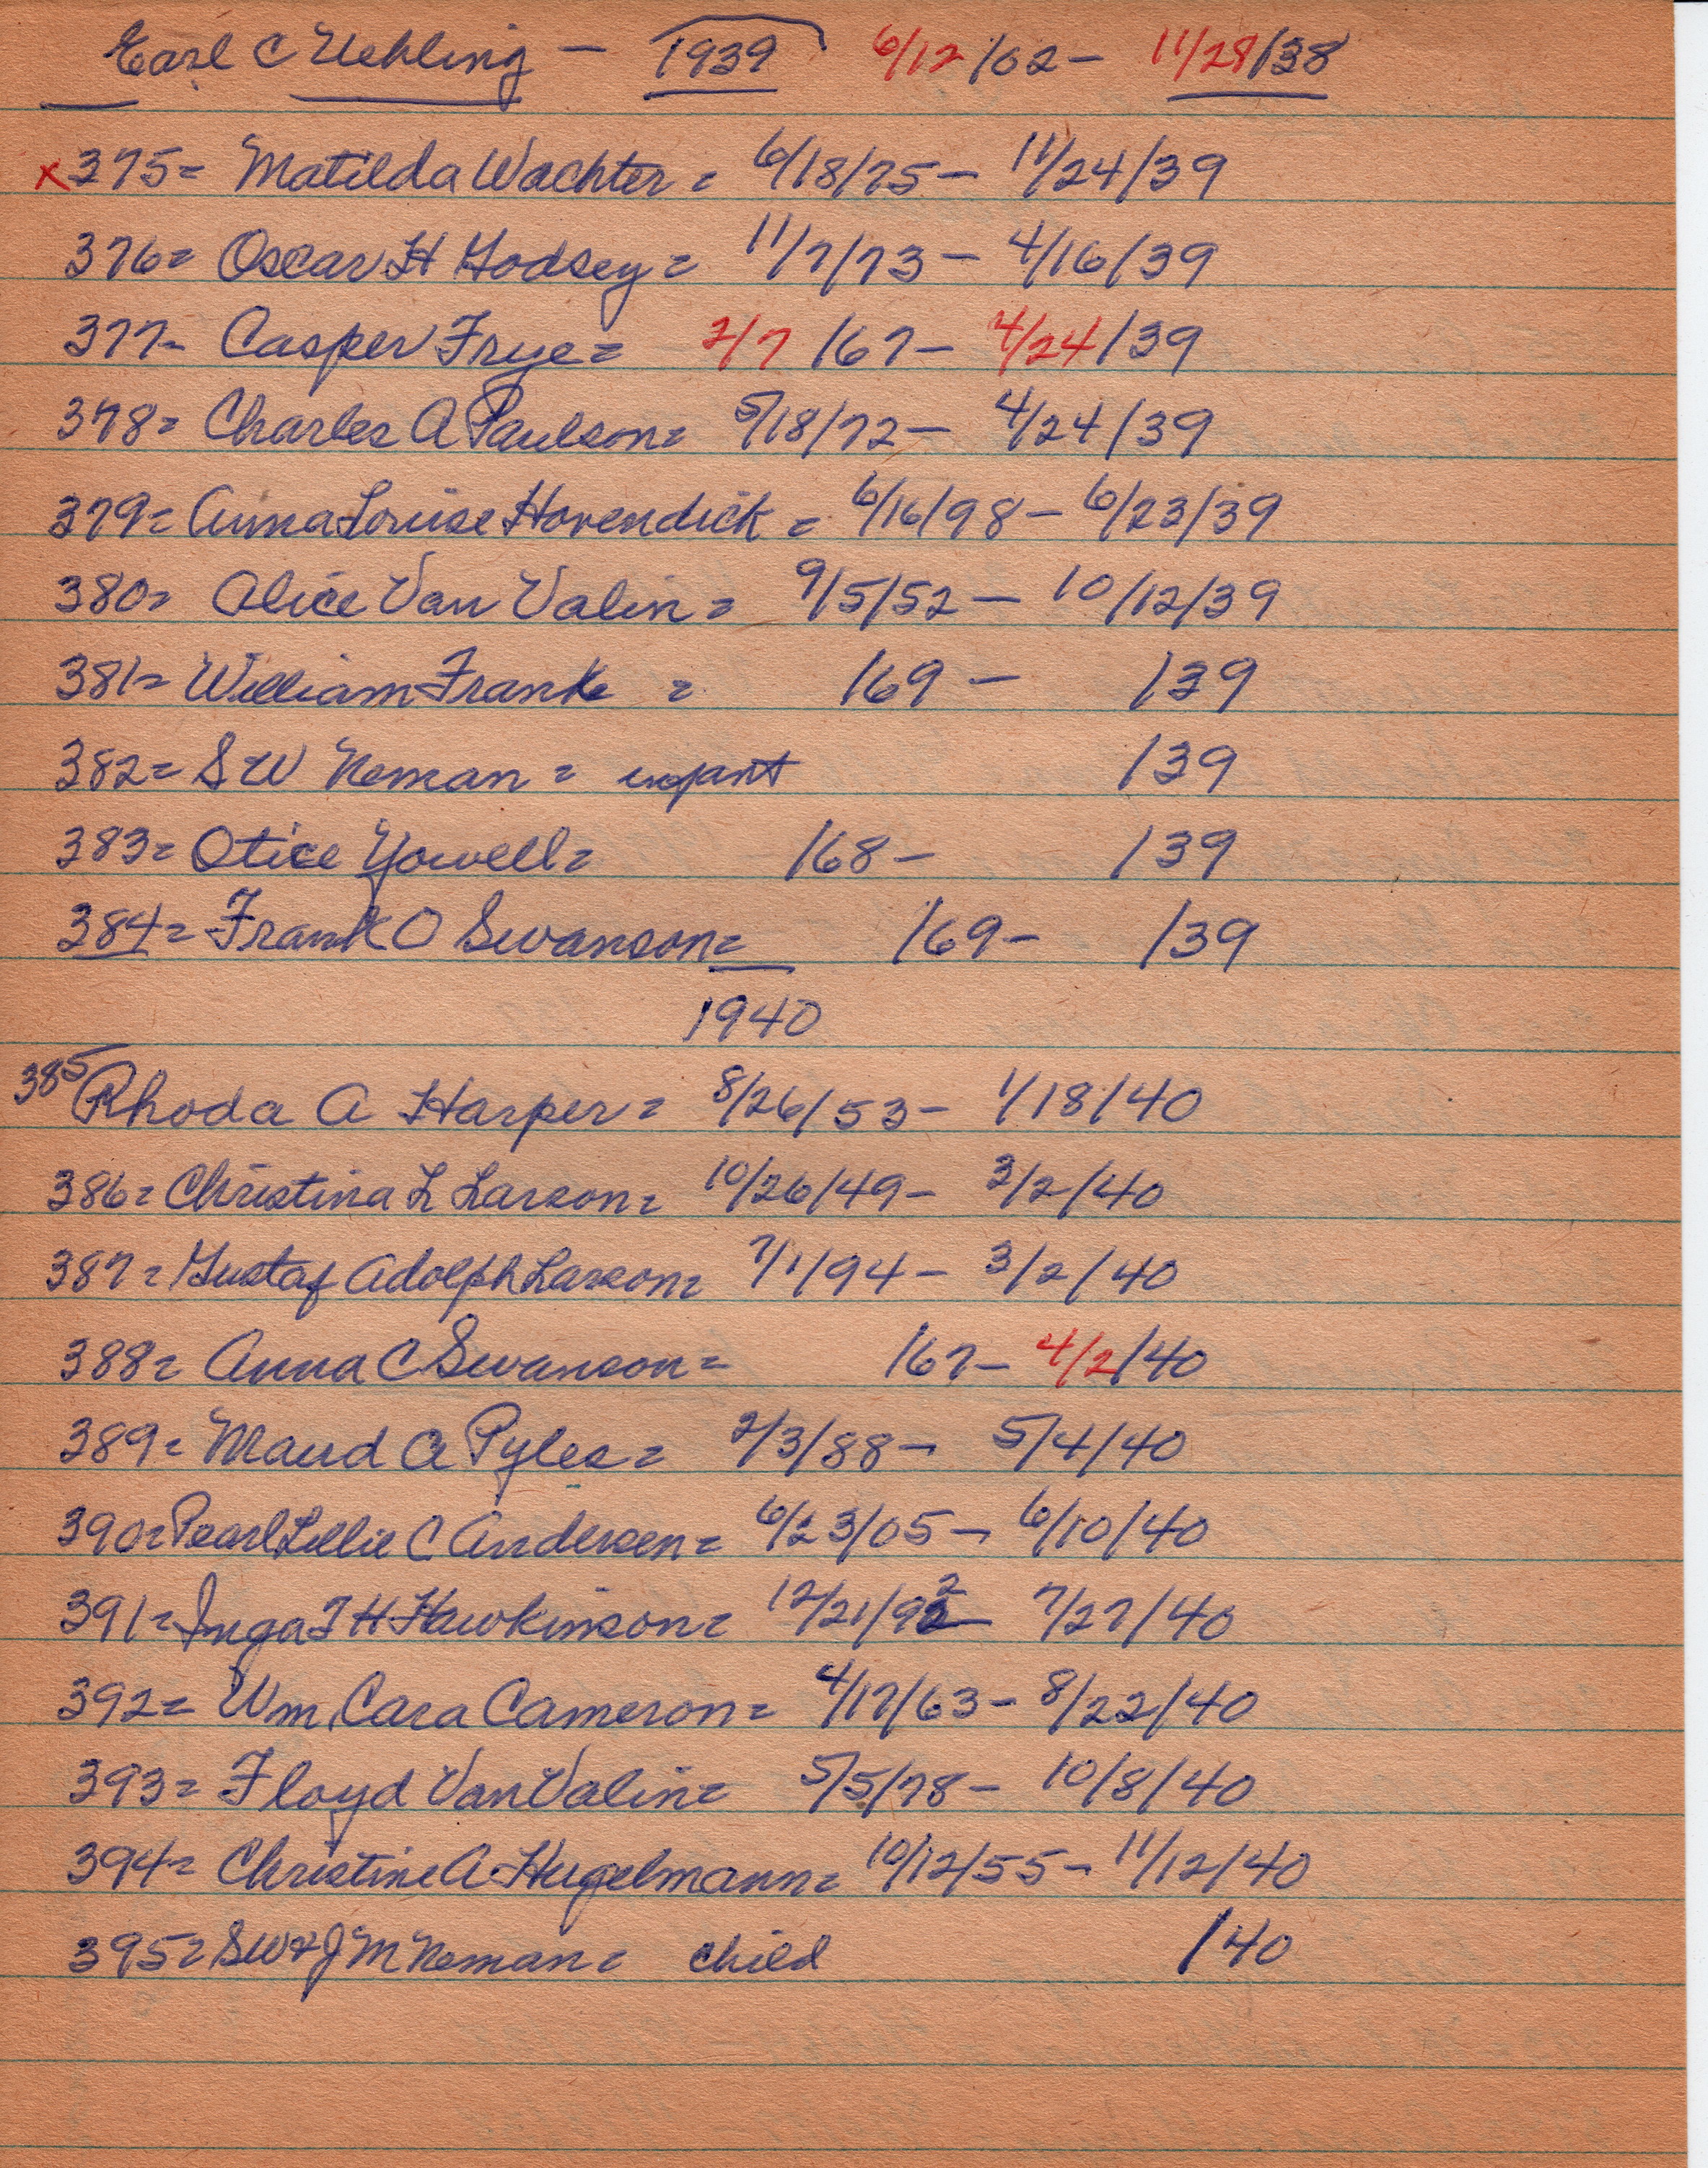 Earl C Uehling — 1939 6/12/62 — 11/28/38
x 375= Matilda Wachter = 6/18/75 — 11/24/39
376= Oscar H Godsey = 11/7/73 — 4/16/39
377- Casper Frye = 2/7/67 — 4/24/39
378= Charles A Paulson = 5/18/72 — 4/24/39
379= Anna Louise Hovendick = 6/16/98 — 6/23/39
380= Alice Van Valin = 9/5/52 — 10/12/39
381= William Frank = /69 — /39
382= S W Neman = infant /39
383= Otice Yowell = /68 — /39
384= Frank O Swanson = /69 — /39
1940
385 Rhoda A Harper = 8/26/53 — 1/18/40
386= Christina L Larson = 10/26/49 — 3/2/40
387= Gustaf Adolph Larson = 7/1/94 — 3/2/40
388= Anna C Swanson = /67 — 4/2/40
389= Maud A Pyles = 2/3/88 — 5/4/40
390= Pearl Lillie C Andersen = 6/23/05 — 6/10/40
391= Inga T H Hawkinson = 12/21/92 — 7/27/40
392= Wm. Cara Cameron = 4/17/63 — 8/22/40
393= Floyd Van Valin = 5/5/78 — 10/8/40
394= Christine A. Hugelmann = 10/12/55 — 11/12/40
395= SW & J M Neman = child /40